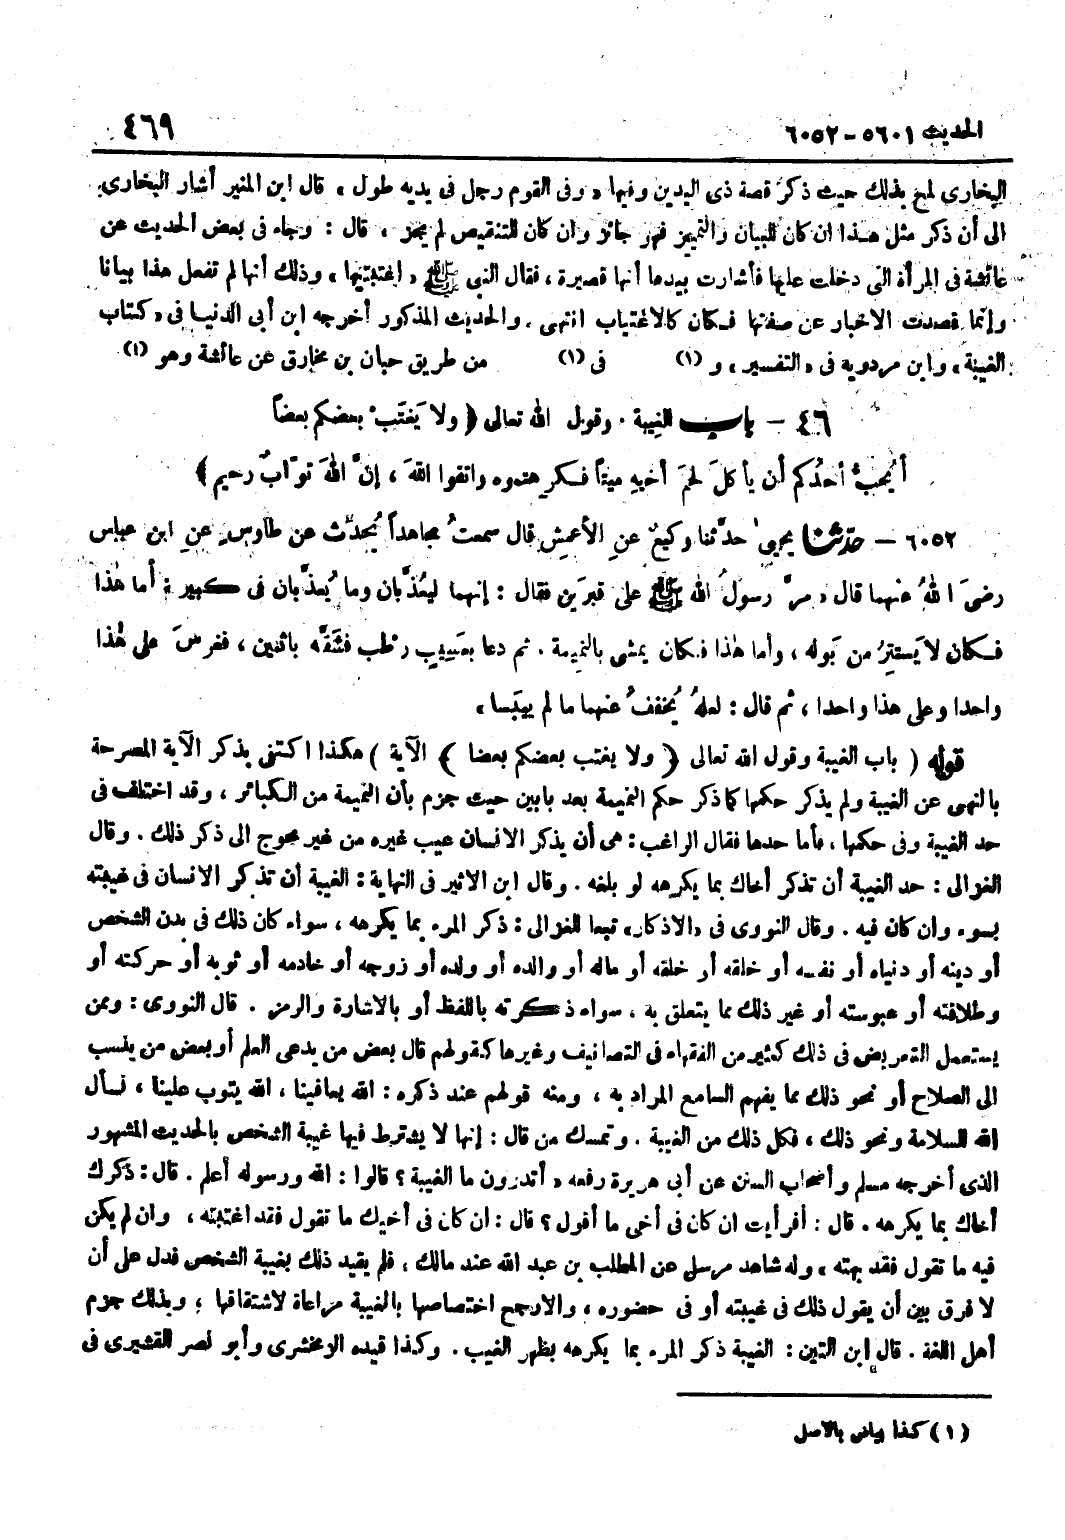 الحديث ٥٦٠١ - ٦٠٥٢
٤٦٩
البخاري لمح بذلك حيث ذكر قصة ذي اليدين وفيها « وفى القوم رجل فى يديه طول ، قال ابن المنير أشار البخارى
الى أن ذكر مثل هـذا ان كان للبيان والتمييز فهو جائز وان كان للتنقيص لم يجز ، قال : وجاء فى بعض الحديث عن
عائشة فى المرأة التى دخلت عليها فأشارت بيدها أنها قصيرة ، فقال النبى ﷺ « اغتبتيها » وذلك أنها لم تفعل هذا بيانا
وإنما قصدت الاخبار عن صفتها فـكان كالاغتياب انتهى . والحديث المذكور أخرجه ابن أبى الدنيـا فى « كتاب
الغيبة » وابن مردويه فى « التفسير » و (١) فى (١) من طريق حبان بن مخارق عن عائشة وهو (١)
٤٦ - باب الغيبة . وقول الله تعالى ﴿ ولا يَغتَبْ بعضكم بعضاً
أيُحبُّ أحدُكم أن يأكلَ لحمَ أخيهِ ميتاً فـكرهتموه واتقوا اللهَ ، إنَّ اللهَ توّابٌ رحيم ﴾
٦٠٥٢ - حدّثنا يحيىٰ حدَّثنا وكيعٌ عنِ الأعمشِ قال سمعتُ مجاهداً يُحدِّث عن طاوسٍ عنِ ابن عباس
رضىَ اللهُ عنهما قال « مرَّ رسولُ الله ﷺ على قبرَين فقال : إنهما ليُعذَّبان وما يُعذَّبان فى كـبير : أما هٰذا
فـكان لا يَستتِرُ من بَوله ، وأما هٰذا فـكان يمشى بالنميمة . ثم دعا بعَسيبٍ رَطْب فشقَّه باثنين ، فغرسَ على هٰذا
واحدا وعلى هذا واحدا ، ثم قال : لعلهُ يُخففُ عنهما ما لم ييبَسا »
قوله ( باب الغيبة وقول الله تعالى ﴿ ولا يغتب بعضكم بعضا ﴾ الآية ) هكذا اكتفى بذكر الآية المصرحة
بالنهى عن الغيبة ولم يذكر حكمها كما ذكر حكم النميمة بعد بابين حيث جزم بأن النميمة من الـكبائر ، وقد اختلف فى
حد الغيبة وفى حكمها ، فأما حدها فقال الراغب : هى أن يذكر الانسان عيب غيره من غير محوج الى ذكر ذلك . وقال
الغزالى : حد الغيبة أن تذكر أخاك بما يكرهه لو بلغه . وقال ابن الاثير فى النهاية : الغيبة أن تذكر الانسان فى غيبته
بسوء وان كان فيه . وقال النووى فى «الاذكار» تبعا للغزالى : ذكر المرء بما يكرهه ، سواء كان ذلك فى بدن الشخص
أو دينه أو دنياه أو نفسه أو خلقه أو خلقه أو ماله أو والده أو ولده أو زوجه أو خادمه أو ثوبه أو حركته أو
وطلاقته أو عبوسته أو غير ذلك مما يتعلق به ، سواء ذكـرته باللفظ أو بالاشارة والرمز . قال النووى : وممن
يستعمل التعريض فى ذلك كثير من الفقهاء فى التصانيف وغيرها كقولهم قال بعض من يدعى العلم أو بعض من ينسب
الى الصلاح أو نحو ذلك مما يفهم السامع المراد به ، ومنه قولهم عند ذكره : الله يعافينا ، الله يتوب علينا ، نسأل
الله السلامة ونحو ذلك ، فكل ذلك من الغيبة . وتمسك من قال : إنها لا يشترط فيها غيبة الشخص بالحديث المشهور
الذى أخرجه مسلم وأصحاب السنن عن أبى هريرة رفعه « أتدرون ما الغيبة ؟ قالوا : الله ورسوله أعلم . قال : ذكرك
أخاك بما يكرهه . قال : أفرأيت ان كان فى أخى ما أقول ؟ قال : ان كان فى أخيك ما تقول فقد اغتبته ، وان لم يكن
فيه ما تقول فقد بهته » وله شاهد مرسل عن المطلب بن عبد الله عند مالك ، فلم يقيد ذلك بغيبة الشخص فدل على أن
لا فرق بين أن يقول ذلك فى غيبته أو فى حضوره ، والارجح اختصاصها بالغيبة مراعاة لاشتقاقها ، وبذلك جزم
أهل اللغة . قال ابن التين : الغيبة ذكر المرء بما يكرهه بظهر الغيب . وكذا قيده الزمخشرى وأبو نصر القشيرى فى
(١) كذا بياض بالاصل